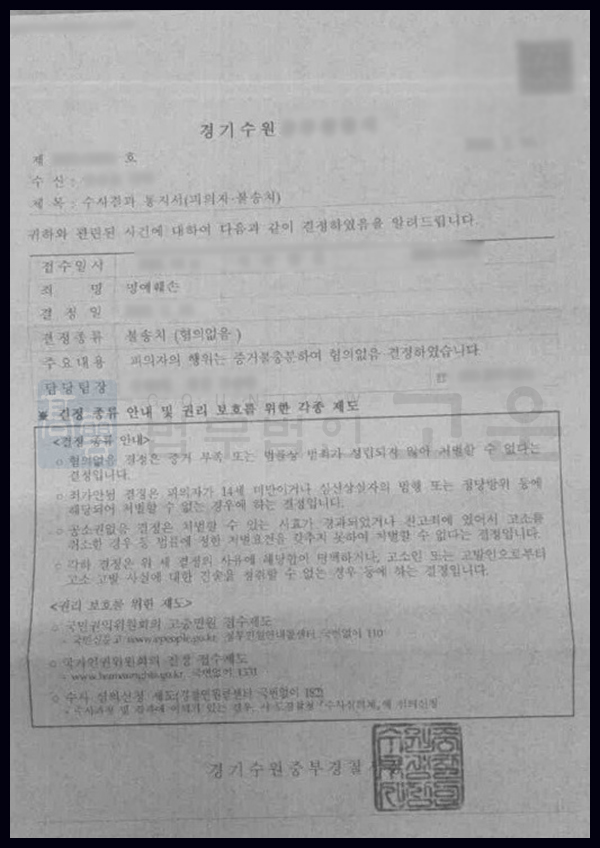 경기수원
제 호
수 신 :
제 목 : 수사결과 통지서(피의자·불송치)
귀하와 관련된 사건에 대하여 다음과 같이 결정하였음을 알려드립니다.
접수일시
죄 명 명예훼손
결 정 일
결정종류 불송치 (혐의없음 )
주요내용 피의자의 행위는 증거불충분하여 혐의없음 결정하였습니다.
담당팀장 ☎
법무법인 고운
※ 결정 종류 안내 및 권리 보호를 위한 각종 제도
<결정 종류 안내>
○ 혐의없음 결정은 증거 부족 또는 법률상 범죄가 성립되지 않아 처벌할 수 없다는
결정입니다.
○ 죄가안됨 결정은 피의자가 14세 미만이거나 심신상실자의 범행 또는 정당방위 등에
해당되어 처벌할 수 없는 경우에 하는 결정입니다.
○ 공소권없음 결정은 처벌할 수 있는 시효가 경과되었거나 친고죄에 있어서 고소를
취소한 경우 등 법률에 정한 처벌요건을 갖추지 못하여 처벌할 수 없다는 결정입니다.
○ 각하 결정은 위 세 결정의 사유에 해당함이 명백하거나, 고소인 또는 고발인으로부터
고소·고발 사실에 대한 진술을 청취할 수 없는 경우 등에 하는 결정입니다.
<권리 보호를 위한 제도>
○ 국민권익위원회의 고충민원 접수제도
- 국민신문고 www.epeople.go.kr, 정부민원안내콜센터 국번없이 110
○ 국가인권위원회의 진정 접수제도
- www.humanrights.go.kr, 국번없이 1331
○ 수사 심의신청 제도(경찰민원콜센터 국번없이 182)
- 수사과정 및 결과에 이의가 있는 경우, 시·도경찰청 「수사심의계」에 심의신청
경기수원중부경찰